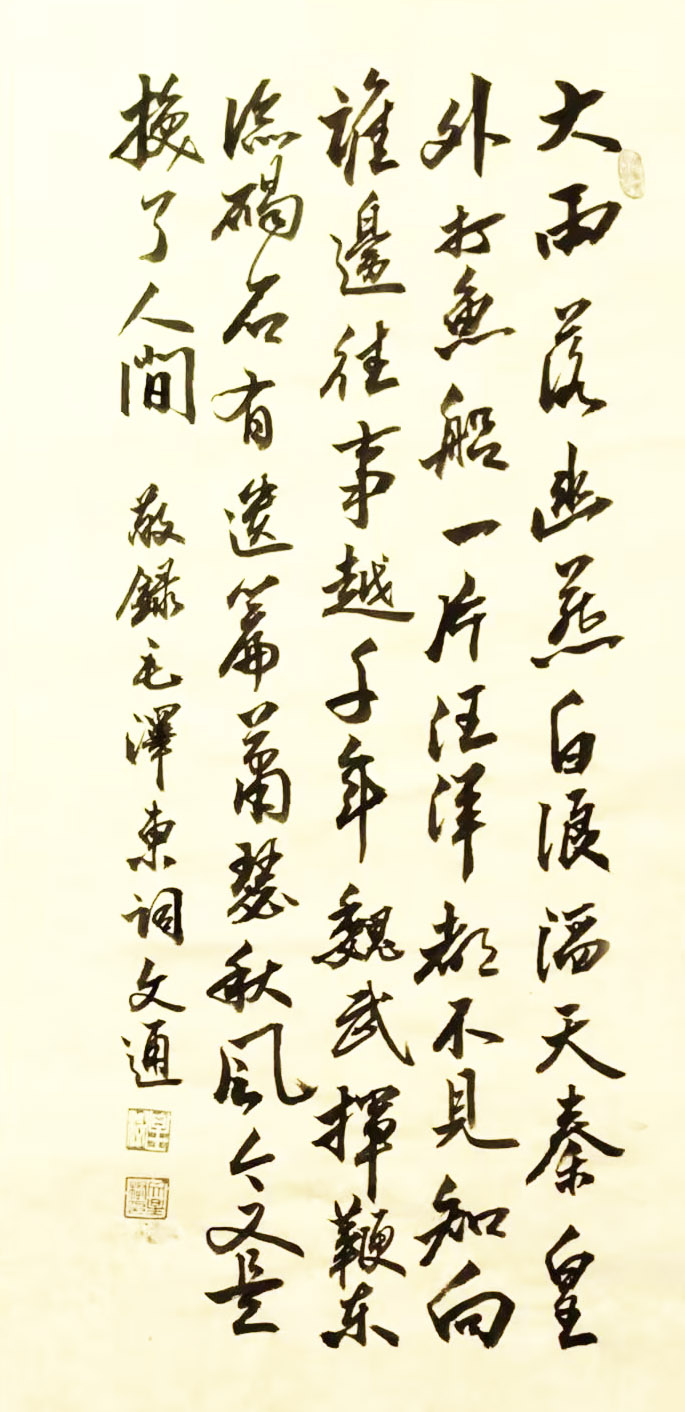 大雨落幽燕白浪滔天秦皇
外打魚船一片汪洋都不見知向
誰邊往事越千年魏武揮鞭东
臨碣石有遺篇蕭瑟秋風今又是
換了人間 敬錄毛澤東詞文通